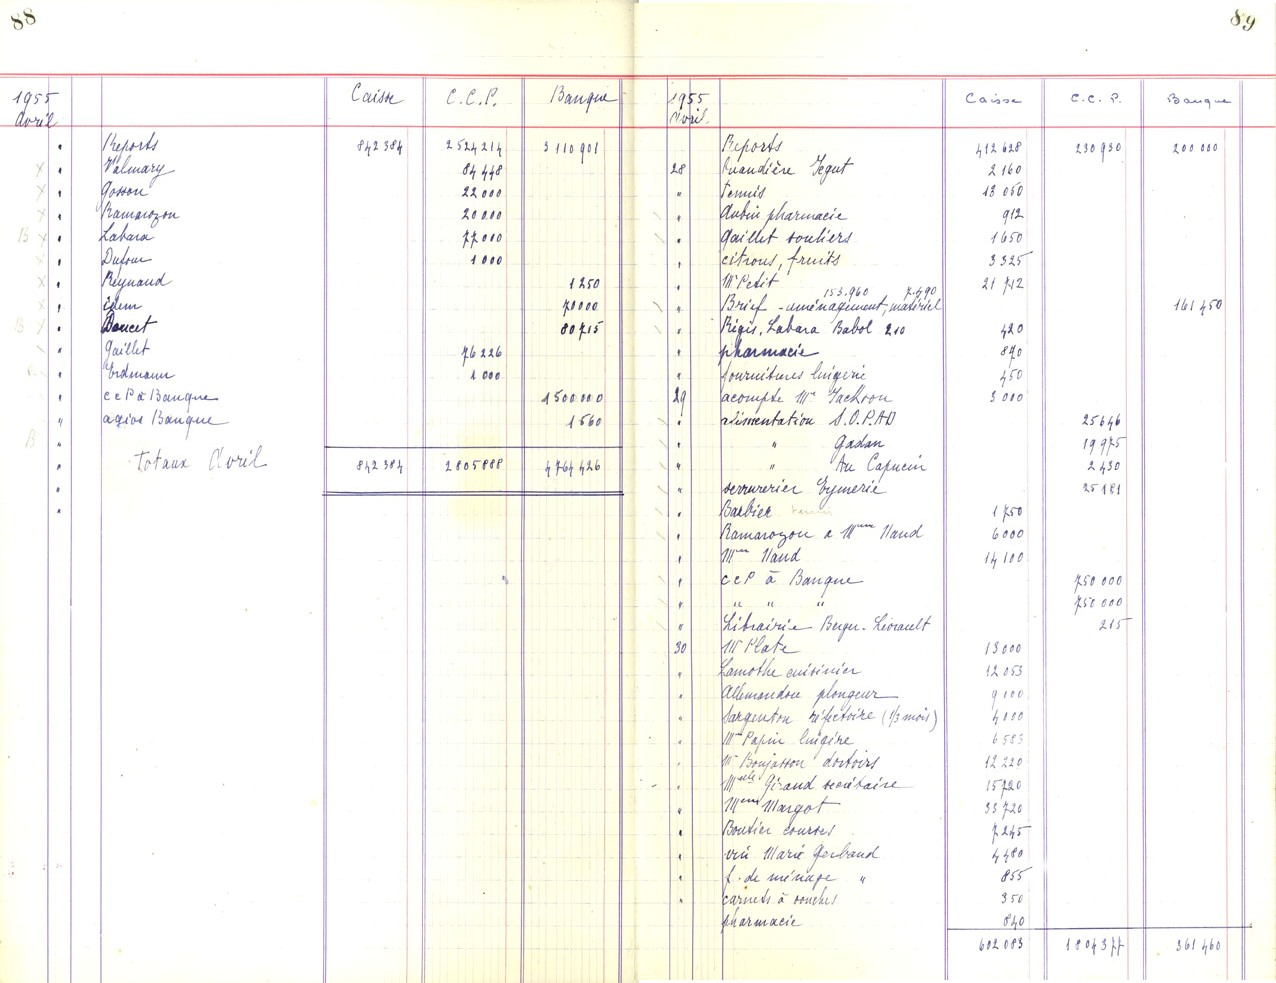 88
1955 Avril Caisse C.C.P. Banque
Reports 842 384 2 524 214 3 110 901
Valmary 84 448
Gosson 22 000
Ramarozon 20 000
Labara 77 000
Dufour 1 000
Reynaud 1 250
idem 70000
Doucet 80 715
Gaillet 76 226
Erdmann 1 000
ccP à Banque 1 500 000
agios Banque 1 560
Totaux Avril 842 384 2 805 888 4 764 426
89
1955 Avril Caisse C.C.P. Banque
Reports 412 628 230 930 200 000
28 2 160
" Tennis 13 050
" Aubin pharmacie 912
" Gaillet souliers 1 650
" citrons, fruits 3 325
" Mr Petit 21 712
153.960 7.490
" Brief - aménagement, matériel 161 450
" Régis, Labara Babol 210 420
" pharmacie 870
" fournitures lingerie 450
29 acompte Mr Jackson 3 000
" alimentation S.O.P.AD 25 646
" " Gadan 19 975
" " Au Capucin 2 430
" serrurerier Eymerie 25 181
" Barbier 1 750
" Ramarozon à Mme Nand 6 000
" Mme Nand 14 100
" ccP à Banque 750 000
" " " " 750 000
" Librairie Berger-Levrault 215
30 Mr Plate 13 000
" Lamothe cuisinier 12 053
" Allemandou plongeur 9 100
" Sargenton réfectoire (1/3 mois) 4 100
" Papin lingère 6 583
" Boujasson dortoirs 12 220
" Melle Giraud secrétaire 15 720
" Mme Margot 33 720
" Boutier courses 7 245
" vin Marie Gerbaud 4 480
" f. de ménage " 855
" carnets à souches 350
pharmacie 840
602 083 1 804 377 361 460